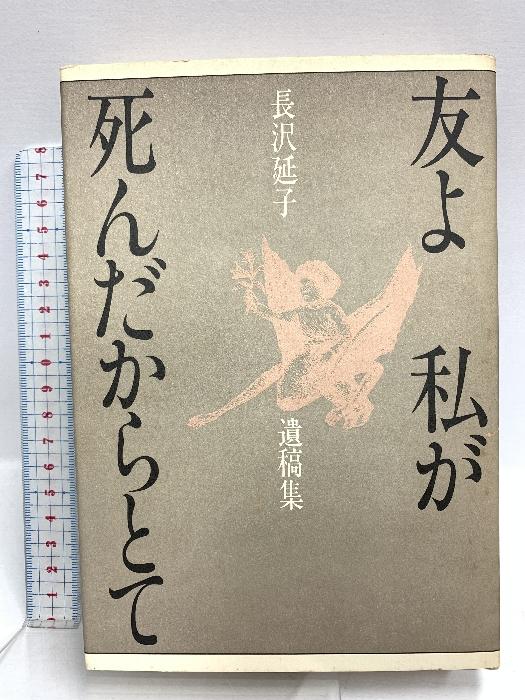 友よ 私が
死んだからとて
長沢延子
遺稿集